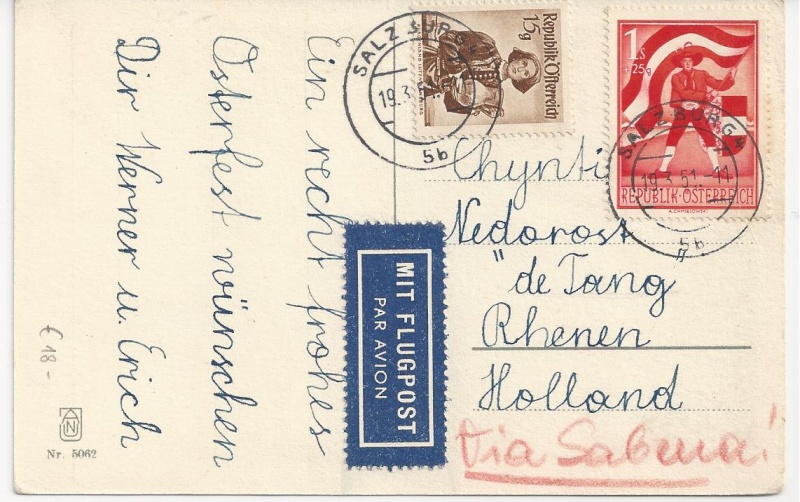 Ein recht frohes
Osterfest wünschen
Dir Werner u. Erich
€ 18-
N
Nr. 5062
MIT FLUGPOST
PAR AVION
SALZBURG
19.3.51
5b
15g
Republik Österreich
1s
+25g
SALZBURG 4
19.3.51.-11
5b
REPUBLIK-ÖSTERREICH
Nedorost
"de Tang"
Rhenen
Holland
Via Sabena!